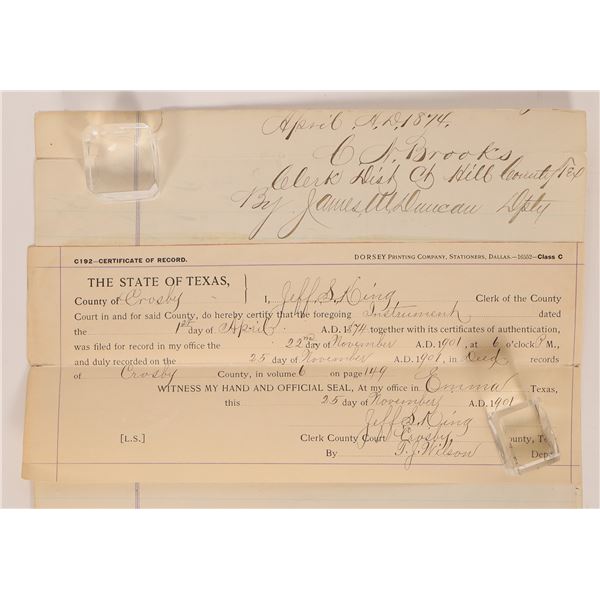 April A.D. 1874.
C N. Brooks
Clerk Dist Ct Hill County Tex
By James M Duncan Dpty
C192—CERTIFICATE OF RECORD.
DORSEY PRINTING COMPANY, STATIONERS, DALLAS.—16552—Class C
THE STATE OF TEXAS,
County of Crosby I, Jeff S. King Clerk of the County
Court in and for said County, do hereby certify that the foregoing Instrument dated
the 1st day of April A.D. 1874 together with its certificates of authentication,
was filed for record in my office the 22nd day of November A.D. 1901, at 6 o'clock P M.,
and duly recorded on the 25 day of November A.D. 1901, in Deed records
of Crosby County, in volume 6 on page 149
WITNESS MY HAND AND OFFICIAL SEAL, At my office in Emma Texas,
this 25 day of November A.D. 1901
Jeff S. King
[L.S.] Clerk County Court Crosby County, T
By T. J. Wilson Dep